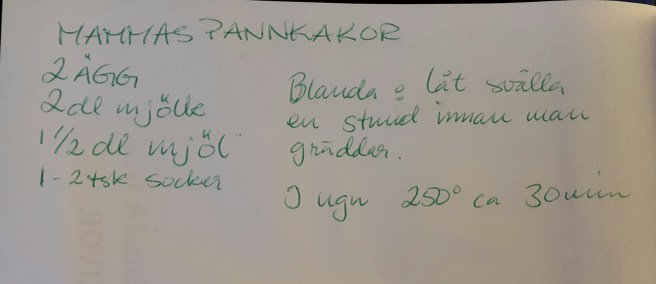 MAMMAS PANNKAKOR
2 ÄGG
2 dl mjölk
1 1/2 dl mjöl
1-2 tsk socker
Blanda o låt svälla
en stund innan man
gräddar.
I ugn 250° ca 30 min